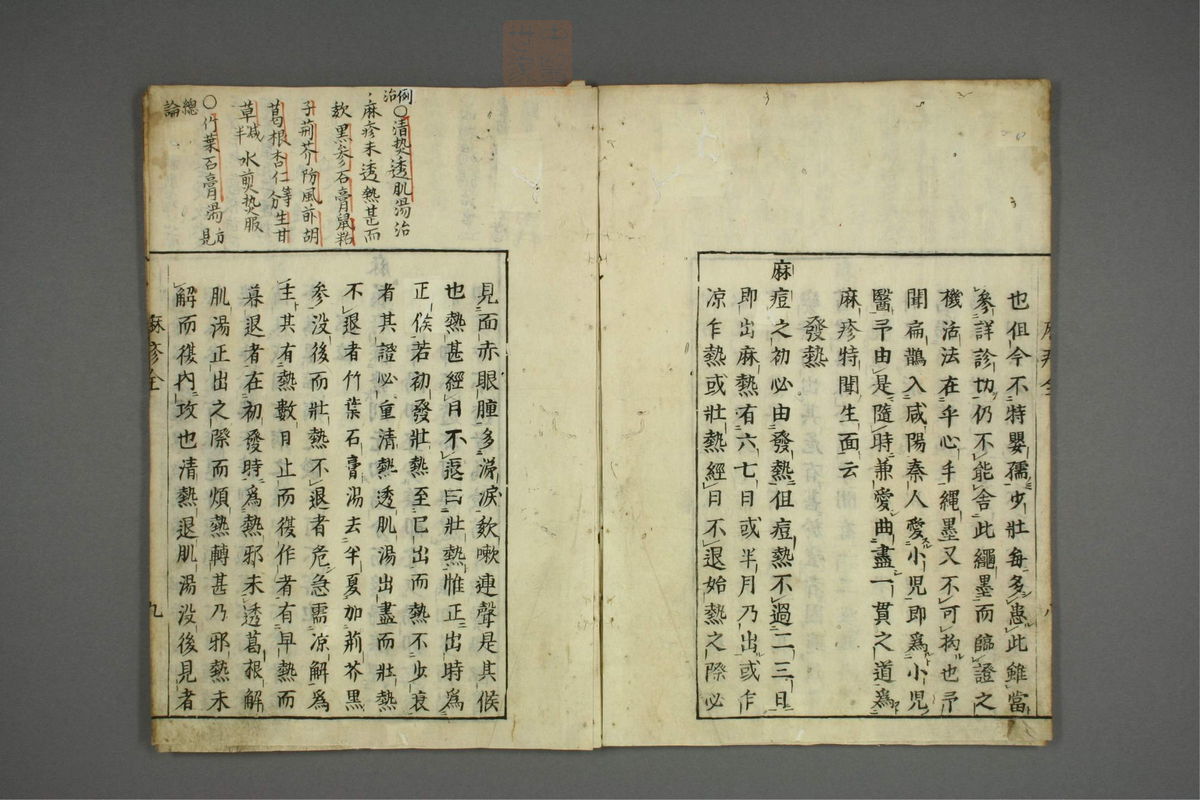 也但今不特嬰孺少壯每多患此雖當
參詳診切仍不能舍此繩墨而臨證之
機活法在乎心手繩墨又不可拘也予
聞扁鵲入咸陽秦人愛小兒即爲小兒
醫予由是隨時兼愛曲盡一貫之道爲
麻疹特開生面云
發熱
麻痘之初必由發熱但痘熱不過二三日
即出麻熱有六七日或半月乃出或乍
凉乍熱或壯熱經日不退始熱之際必
例治
○清熱透肌湯治
麻疹未透熱甚而
欬黑參石膏鼠粘
子荊芥防風前胡
葛根杏仁等分生甘
草減半水煎熱服
○竹葉石膏湯方見
總論
見面赤眼腫多涕淚欬嗽連聲是其候
也熱甚經日不退曰壯熱惟正出時爲
正候若初發壯熱至已出而熱不少衰
者其證必重清熱透肌湯出盡而壯熱
不退者竹葉石膏湯去半夏加荊芥黑
參没後而壯熱不退者危急需凉解爲
主其有熱數日止而復作者有早熱而
暮退者在初發時爲熱邪未透葛根解
肌湯正出之際而煩熱轉甚乃邪熱未
解而復內攻也清熱退肌湯没後見者
麻疹全
九